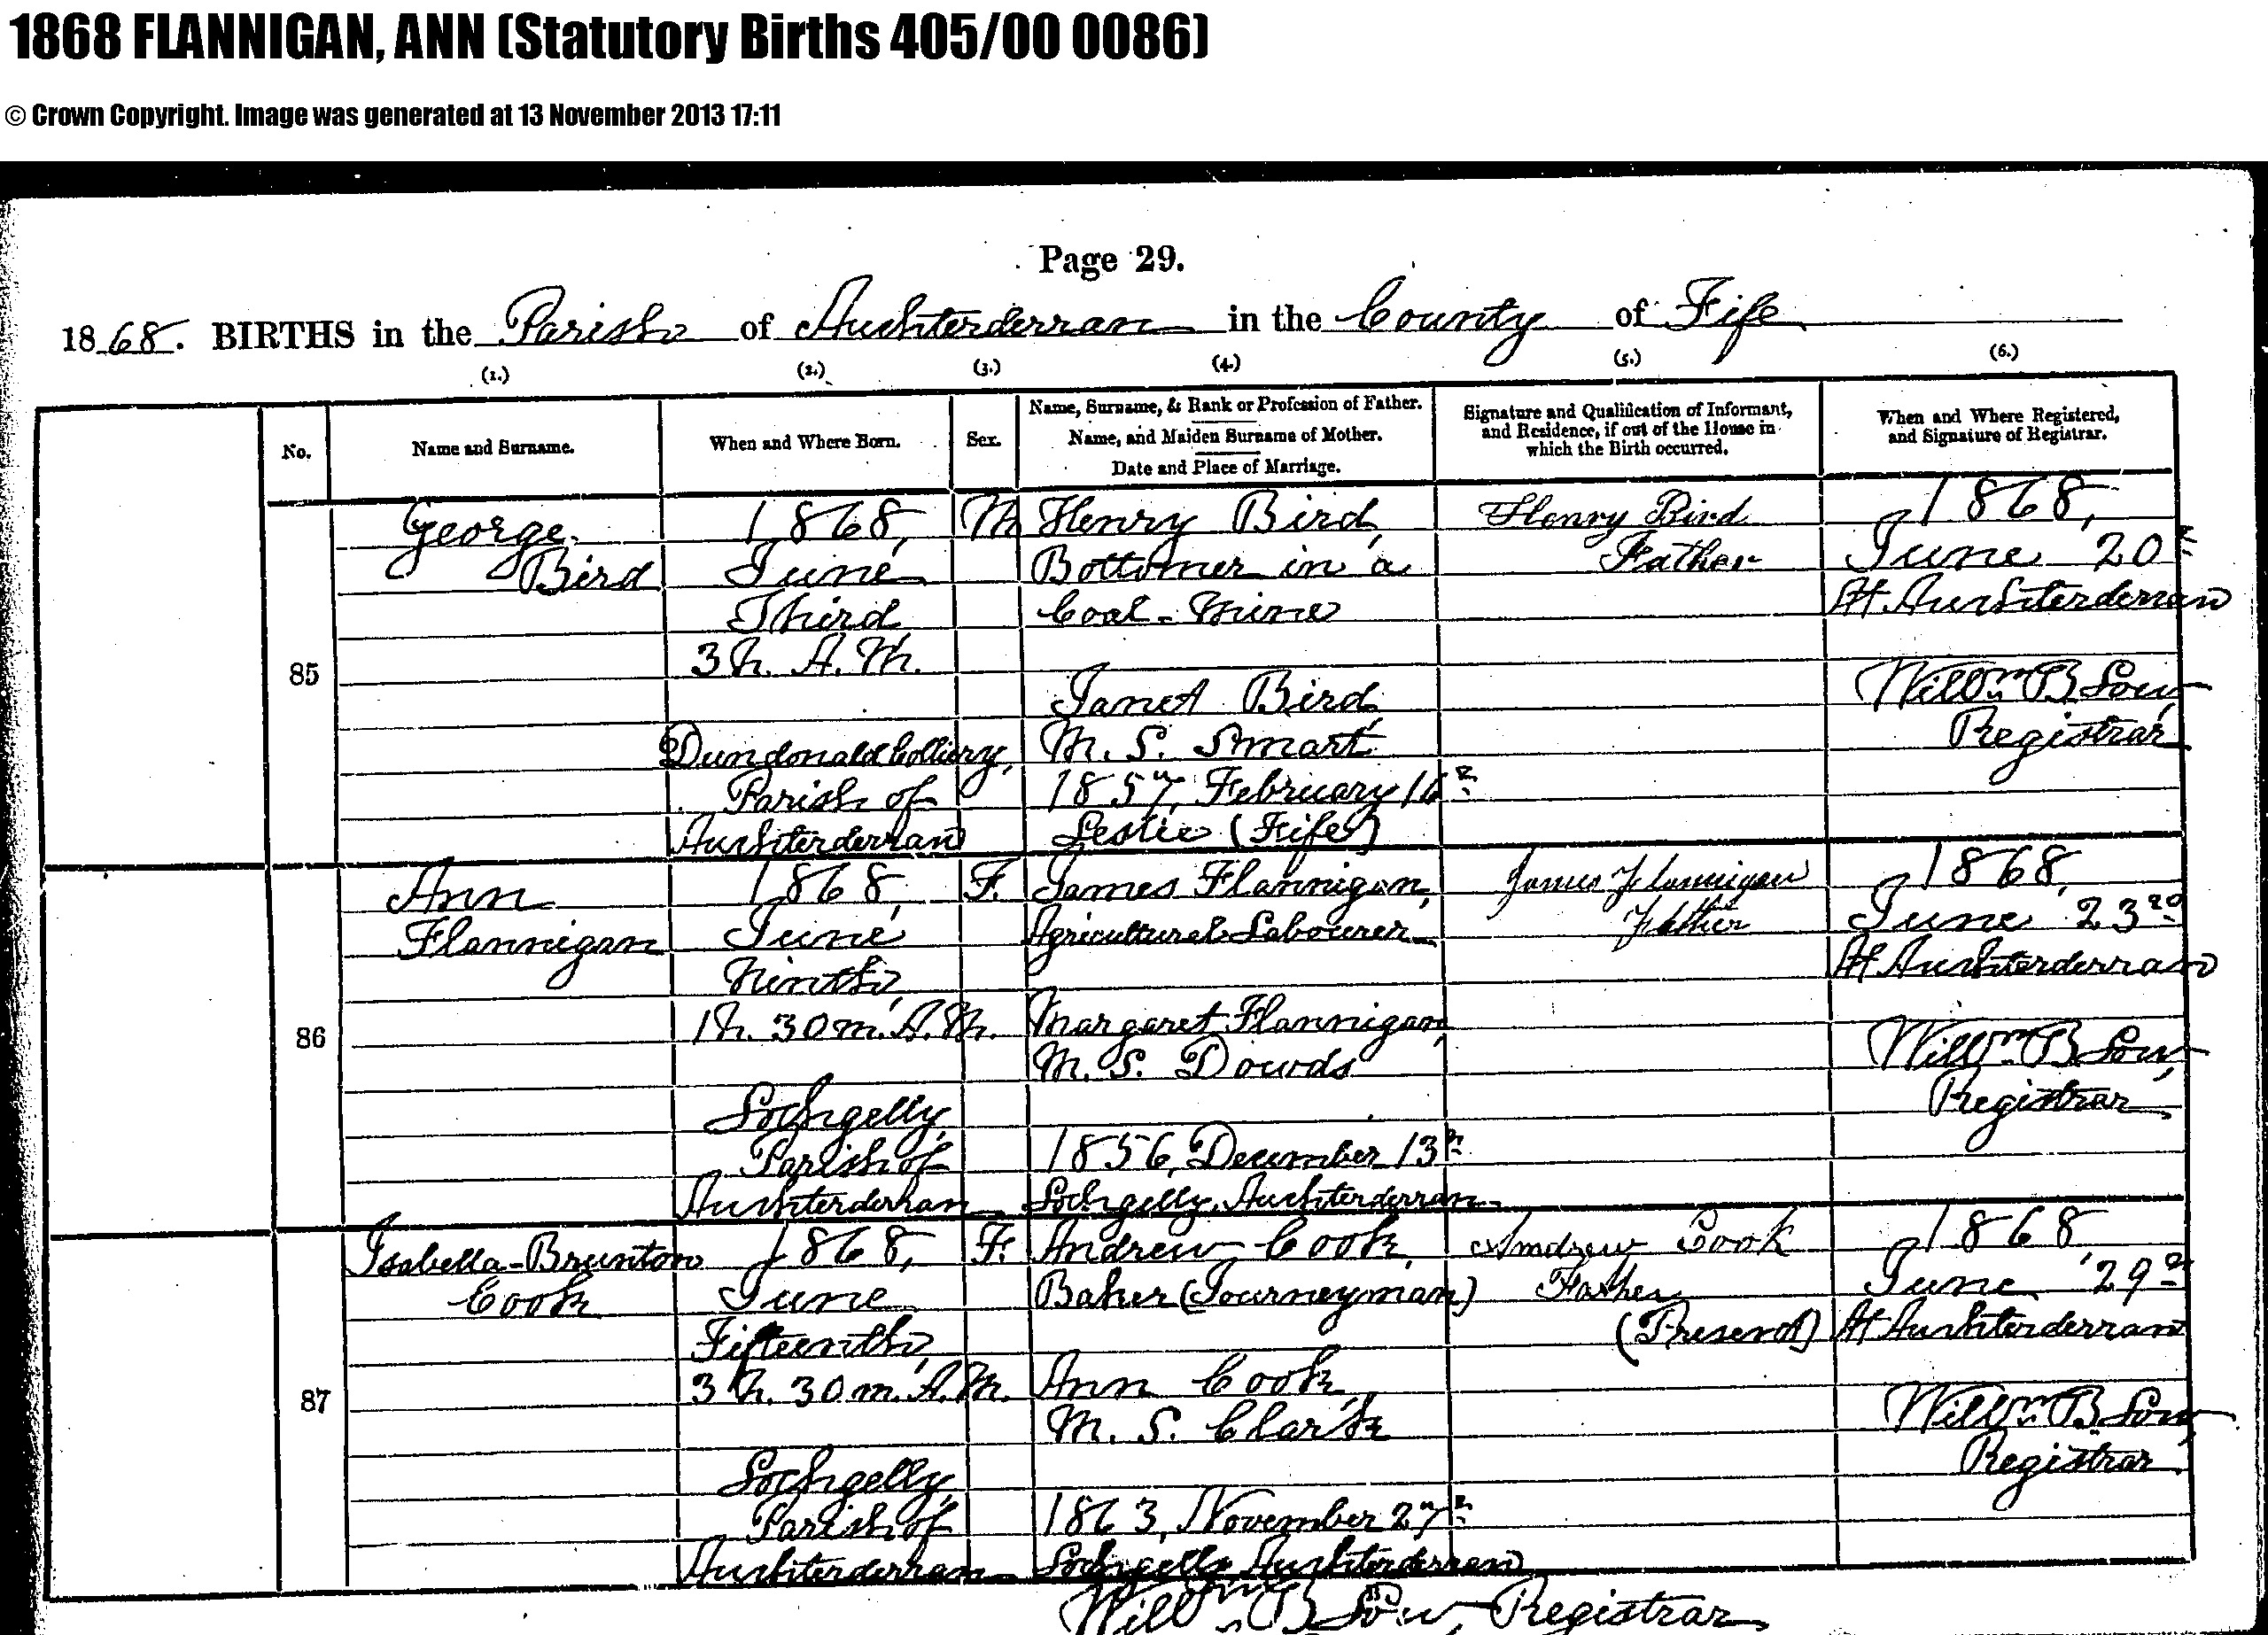 1868 FLANNIGAN, ANN (Statutory Births 405/00 0086)
© Crown Copyright. Image was generated at 13 November 2013 17:11
Page 29.
1868. BIRTHS in the Parish of Auchterderran in the County of Fife
(1.) (2.) (3.) (4.) (5.) (6.)
No.
Name and Surname.
When and Where Born.
Sex.
Name, Surname, & Rank or Profession of Father.
Name, and Maiden Surname of Mother.
Date and Place of Marriage.
Signature and Qualification of Informant,
and Residence, if out of the House in
which the Birth occurred.
When and Where Registered,
and Signature of Registrar.
85
George
Bird
1868,
June
Third
3h. A.M.
Dundonald Colliery,
Parish of
Auchterderran
M
Henry Bird,
Bottomer in a
Coal-Mine
Janet Bird,
M.S. Smart
1857, February 16th
Leslie (Fife)
Henry Bird
Father
1868,
June 20th
At Auchterderran
Willm B Low,
Registrar
86
Ann
Flannigan
1868,
June
Ninth,
1h. 30m. A.M.
Lochgelly,
Parish of
Auchterderran
F.
James Flannigan,
Agricultural Labourer
Margaret Flannigan,
M.S. Dowds
1856, December 13th
Lochgelly, Auchterderran
James Flannigan
Father
1868,
June 23rd
At Auchterderran
Willm B Low,
Registrar
87
Isabella-Brunton
Cook
1868,
June
Fifteenth,
3h. 30m. A.M.
Lochgelly,
Parish of
Auchterderran
F.
Andrew Cook,
Baker (Journeyman)
Ann Cook,
M.S. Clark
1863, November 27th
Lochgelly, Auchterderran
Andrew Cook
Father
(Present)
1868
June 29th
At Auchterderran
Willm B Low,
Registrar
Willm B Low, Registrar